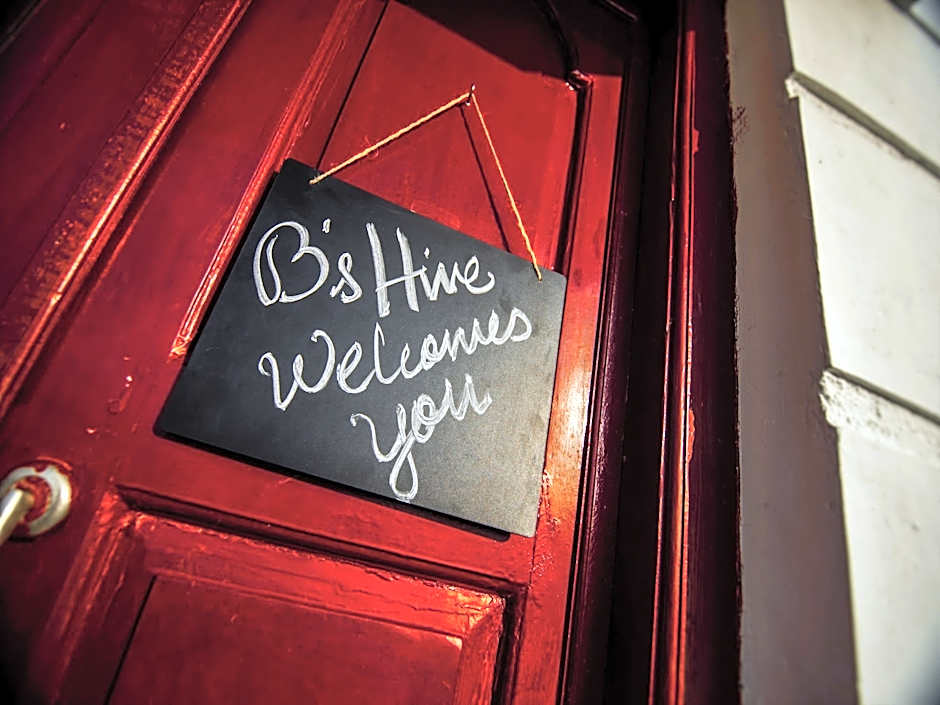 B's Hive
Welcomes
You